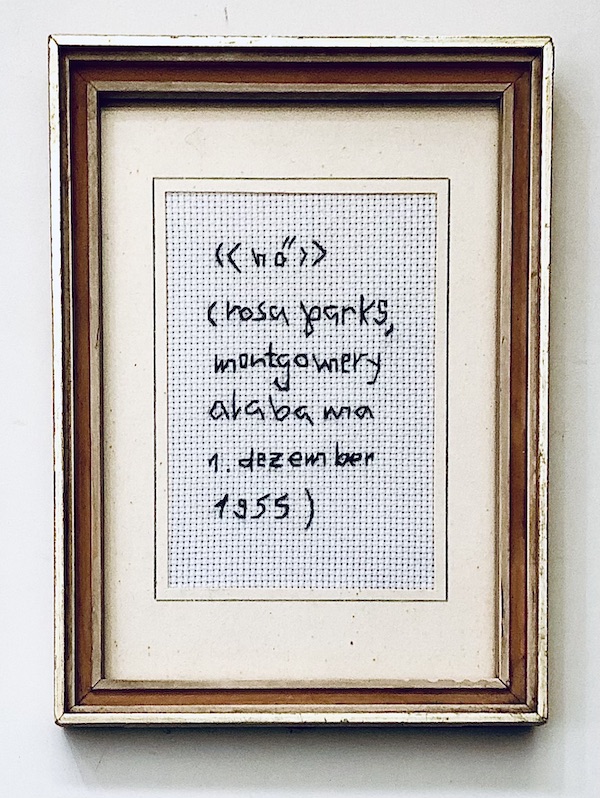 <<nő>>
(rosa parks,
montgomery
alabama
1. dezember
1955)